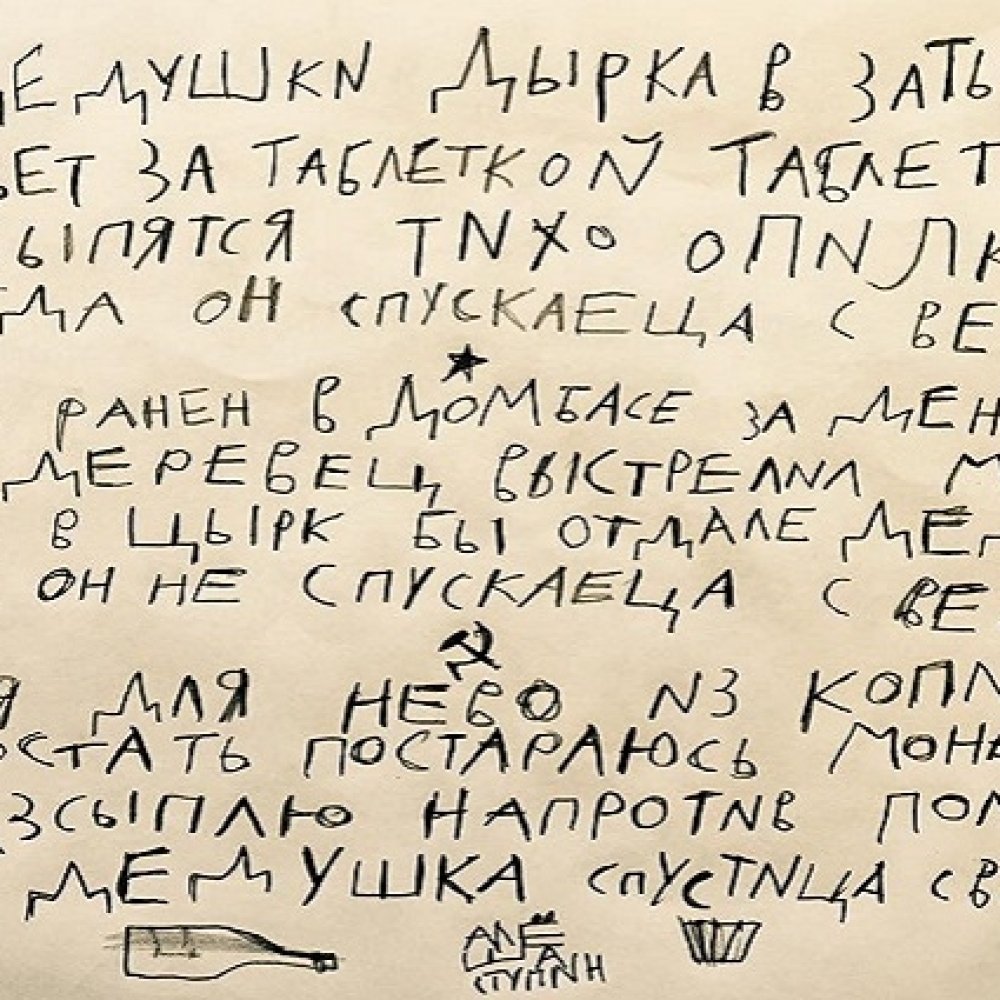 ДЕДУШКИ ДЫРКА В ЗАТЫ
ЬЕТ ЗА ТАБЛЕТКОЙ ТАБЛЕТ
ЫПЯТСЯ ТИХО ОПИЛК
ГДА ОН СПУСКАЕЦА С ВЕ
РАНЕН В ДОМБАСЕ ЗА ДЕН
ДЕРЕВЕЦ ВЫСТРЕЛИЛ М
В ЦЫРК БЫ ОТДАЛЕ ДЕД
ОН НЕ СПУСКАЕЦА С ВЕ
Я ДЛЯ НЕВО ИЗ КОПИ
ОСТАТЬ ПОСТАРАЮСЬ МОНА
ЗСЫПЛЮ НАПРОТИВ ПОМ
ДЕДУШКА СПУСТИЦА СВ